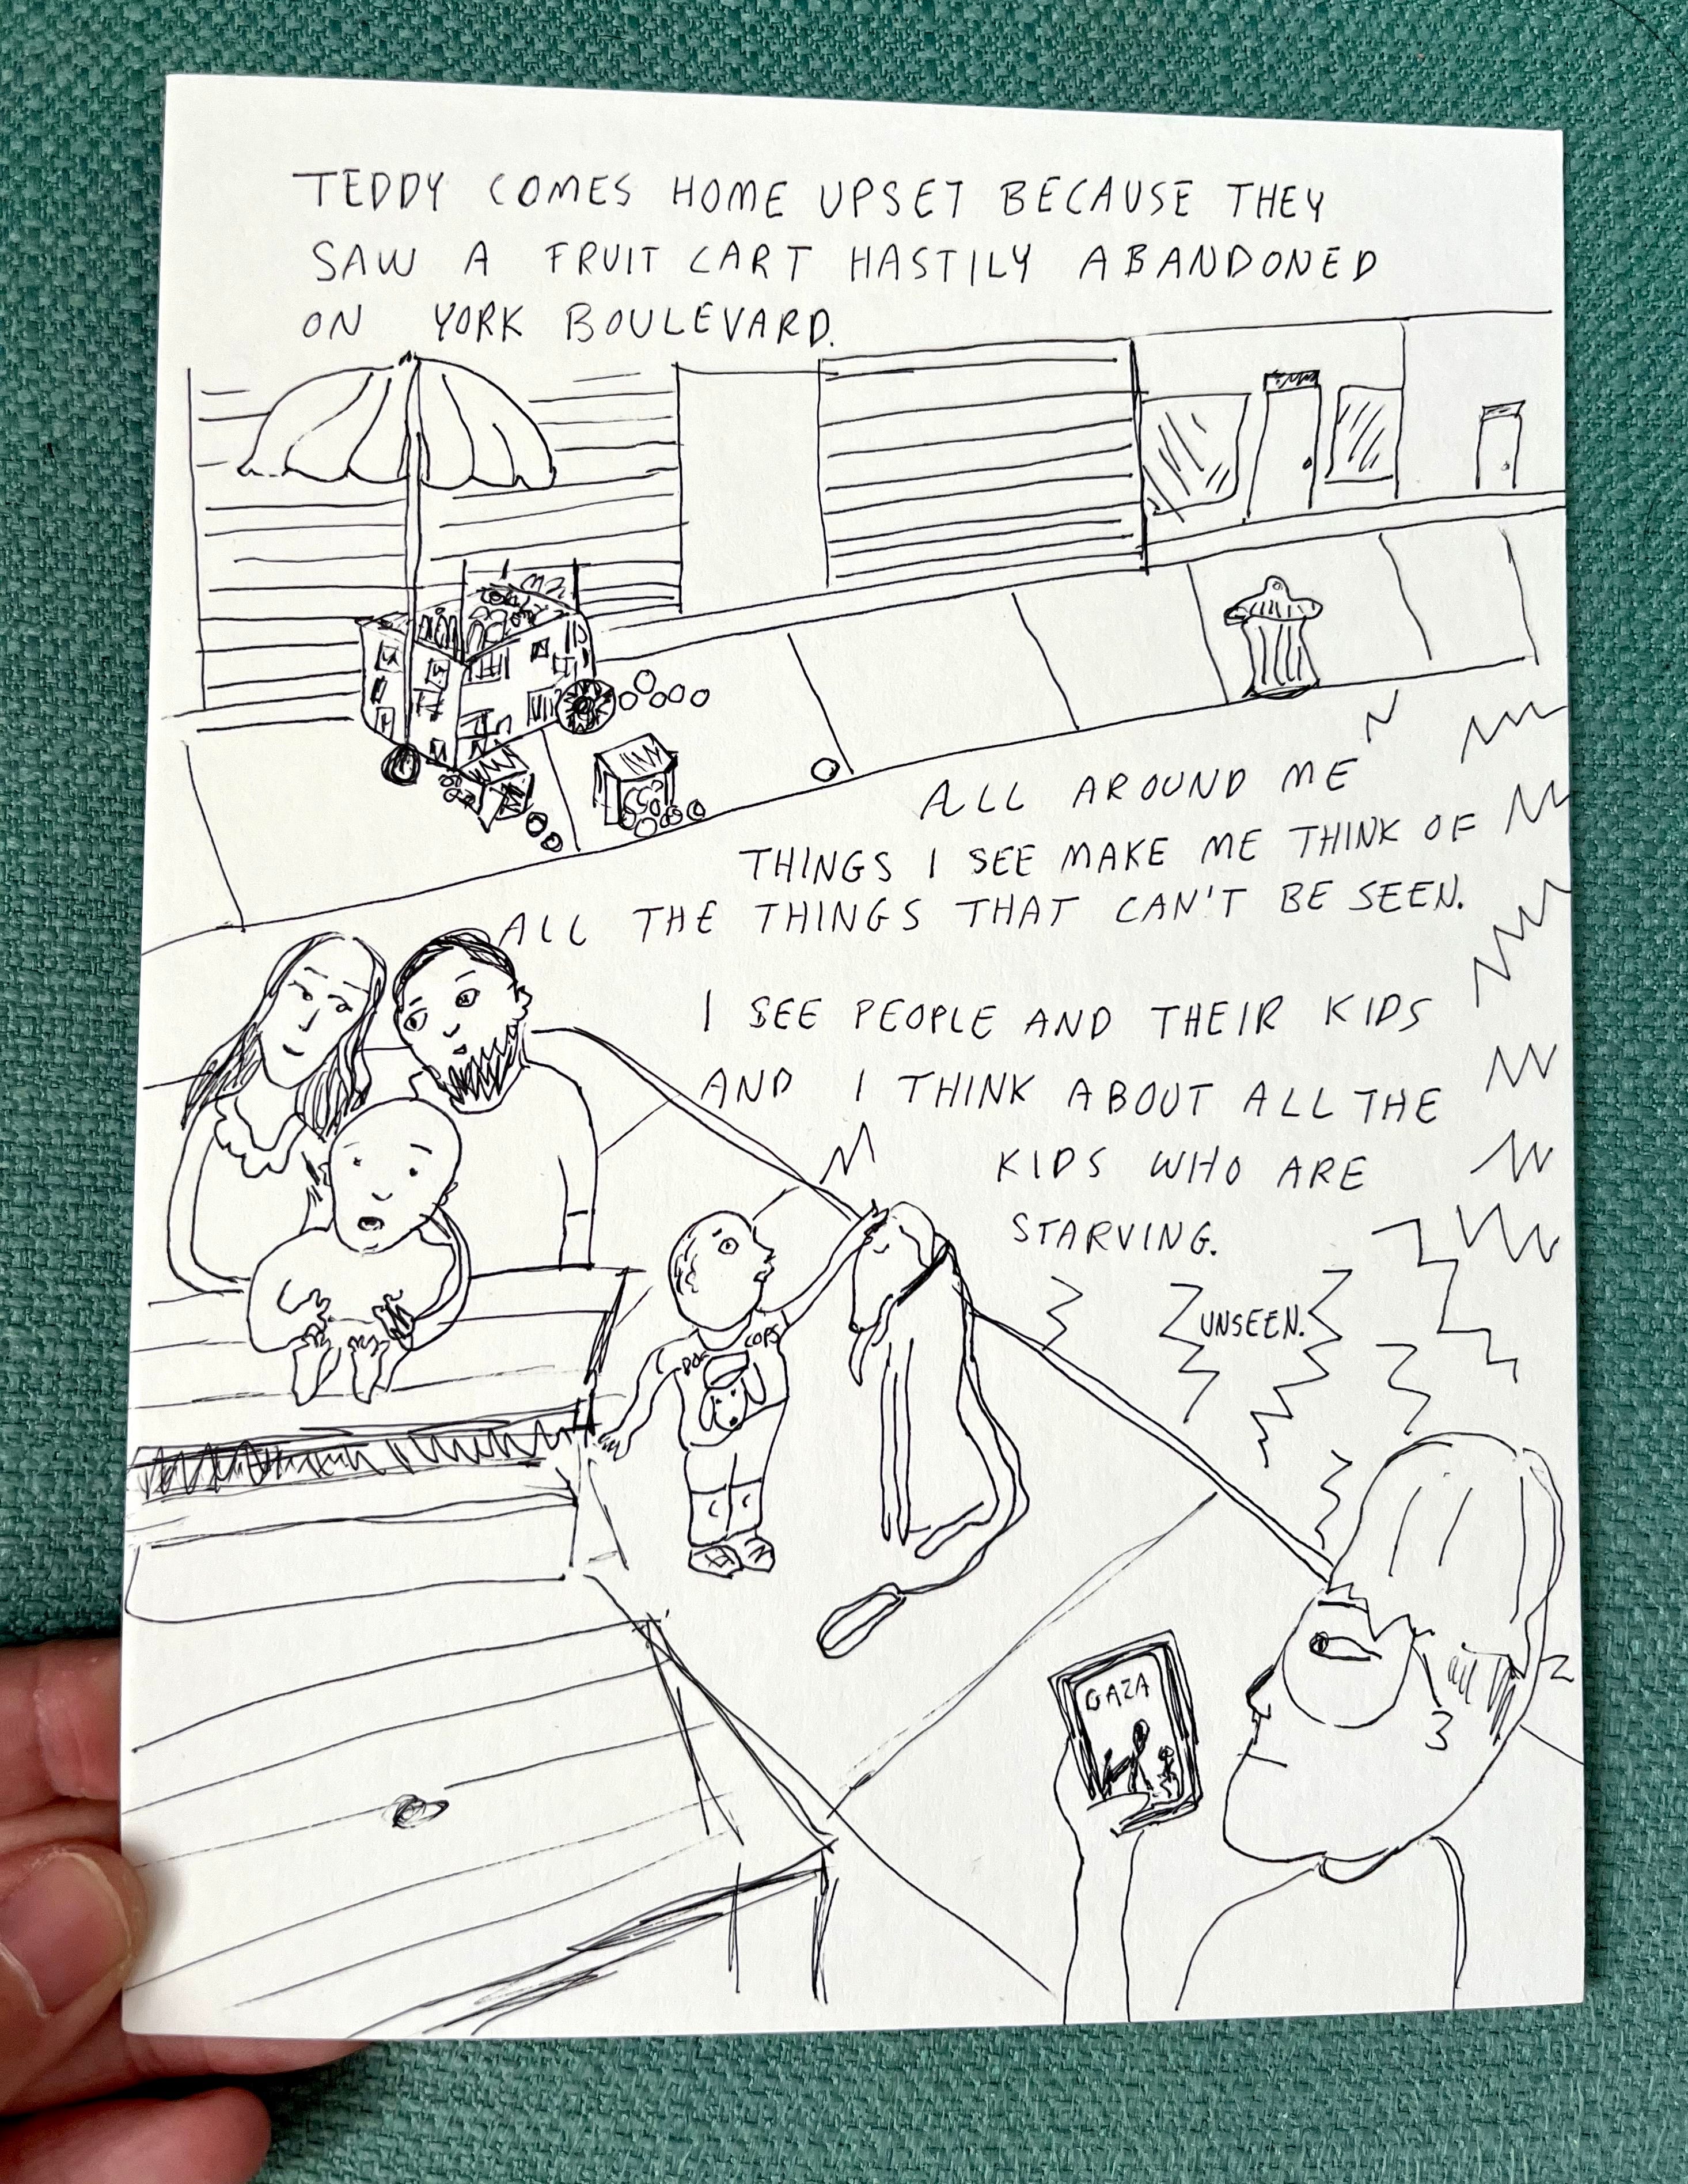 TEDDY COMES HOME UPSET BECAUSE THEY
SAW A FRUIT CART HASTILY ABANDONED
ON YORK BOULEVARD.
ALL AROUND ME
THINGS I SEE MAKE ME THINK OF
ALL THE THINGS THAT CAN'T BE SEEN.
I SEE PEOPLE AND THEIR KIDS
AND I THINK ABOUT ALL THE
KIDS WHO ARE
STARVING.
UNSEEN.
DOG COPS
GAZA